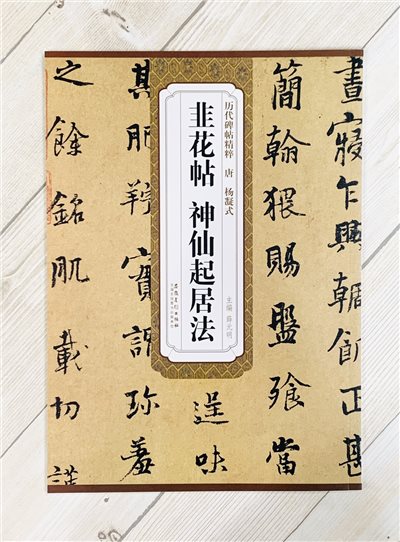 晝寢乍興輖飢正甚
簡翰猥賜盤飧當
逞味
其肥羜實謂珍羞
之餘銘肌載切謹
历代碑帖精粹 唐 杨凝式
韭花帖 神仙起居法
主编 薛元明